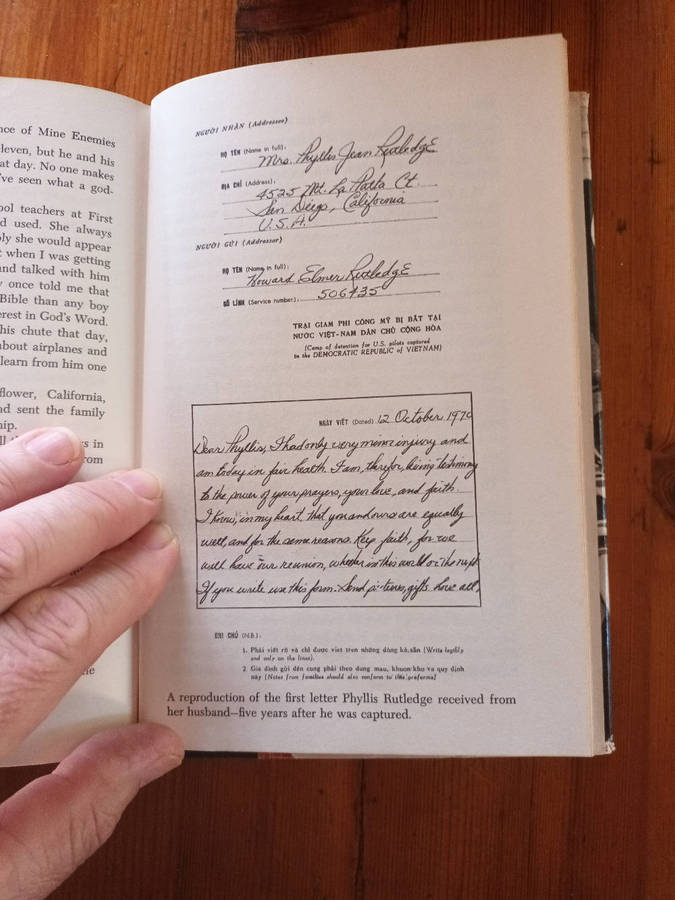 nce of Mine Enemies
leven, but he and his
at day. No one makes
've seen what a god-
ool teachers at First
d used. She always
oly she would appear
t when I was getting
and talked with him
y once told me that
Bible than any boy
erest in God's Word.
his chute that day,
about airplanes and
learn from him one
flower, California,
nd sent the family
hip.
rs in
rom
he
NGƯỜI NHẬN (Addressee)
HỌ TÊN (Name in full): Mrs. Phyllis Jean Rutledge
ĐỊA CHỈ (Address): 4525 Mt. La Platta Ct
San Diego, California
U.S.A.
NGƯỜI GỬI (Addresser)
HỌ TÊN (Name in full): Howard Elmer Rutledge
SỐ LÍNH (Service number): 506435
TRẠI GIAM PHI CÔNG MỸ BỊ BẮT TẠI
NƯỚC VIỆT-NAM DÂN CHỦ CỘNG HÒA
(Camp of detention for U.S. pilots captured
in the DEMOCRATIC REPUBLIC of VIETNAM)
NGÀY VIẾT (Dated) 12 October 1970
Dear Phyllis, I had only very minor injury and
am today in fair health. I am, therfor, living testimony
to the power of your prayers, your love, and faith.
I know, in my heart, that you and ours are equally
well, and for the same reasons. Keep faith, for we
will have our reunion, whether in this world or the next.
If you write use this form. Send pictures, gifts. Love all,
GHI CHÚ (N.B.):
1. Phải viết rõ và chỉ được viết trên những dòng kẻ sẵn (Write legibly
and only on the lines).
2 Gia đình gửi đến cũng phải theo đúng mẫu, khuôn khổ và quy định
này (Notes from families should also conform to this proforma)
A reproduction of the first letter Phyllis Rutledge received from
her husband—five years after he was captured.